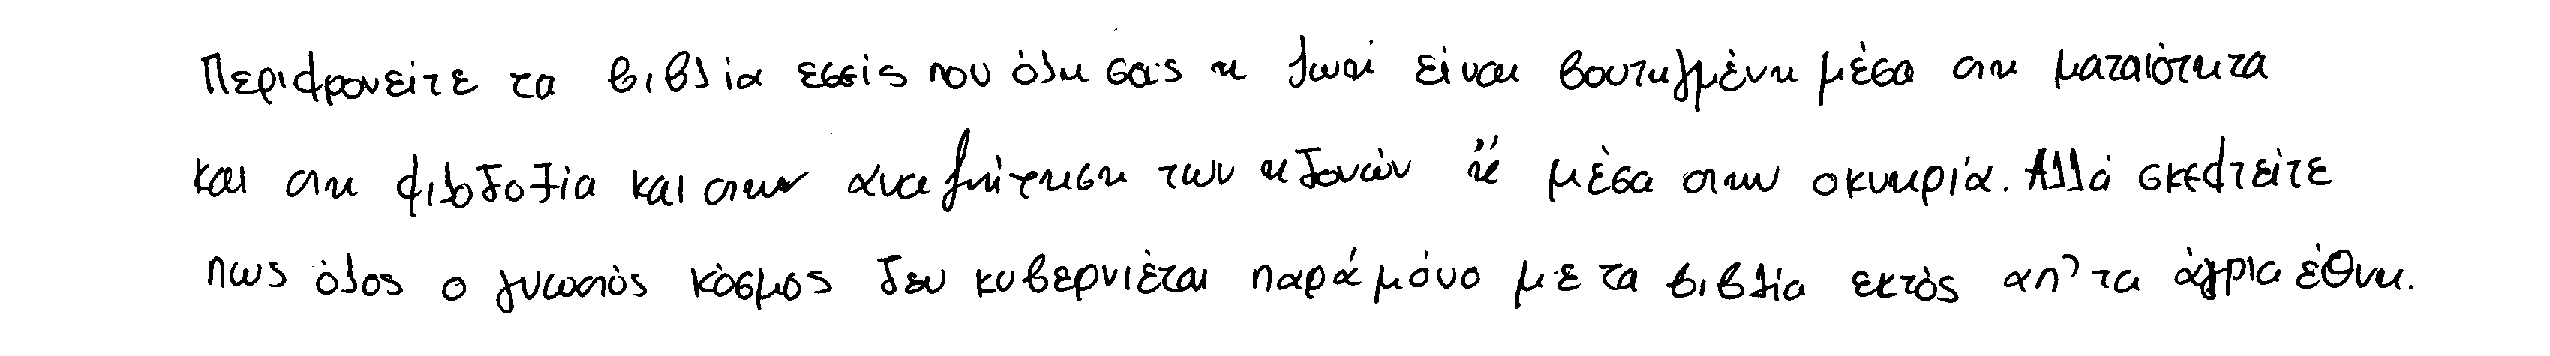 Περιφρονείτε τα βιβλία εσείς που όλη σας η ζωή είναι βουτηγμένη μέσα στη ματαιότητα
και στη φιλοδοξία και στην αναζήτηση των ηδονών ή μέσα στην οκνηρία. Αλλά σκεφτείτε
πως όλος ο γνωστός κόσμος δεν κυβερνιέται παρά μόνο με τα βιβλία εκτός απ' τα άγρια έθνη.